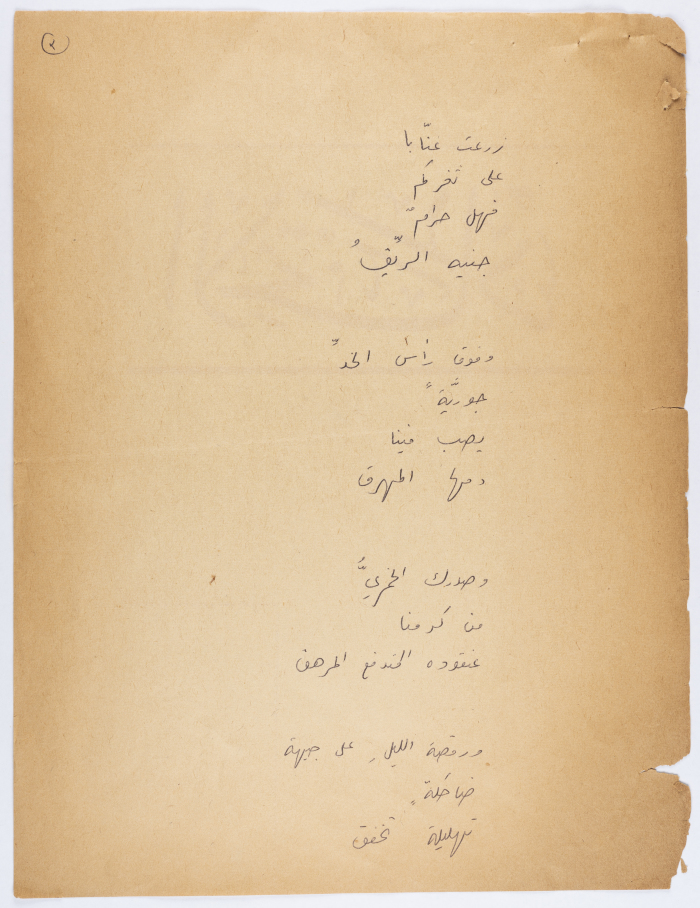 ٢
زرعت عنّابا
على ثغركم
فهل حرامٌ
جنيه الريّقُ
وفوق رأس الخدِّ
جوريّةً
يصب فينا
دمها المهرق
وصدرك الخمريُّ
من كرمنا
عنقوده المندفع المرهف
ورقصة الليلِ على جبهة
ضاحكةٍ
تهليلة تخفق